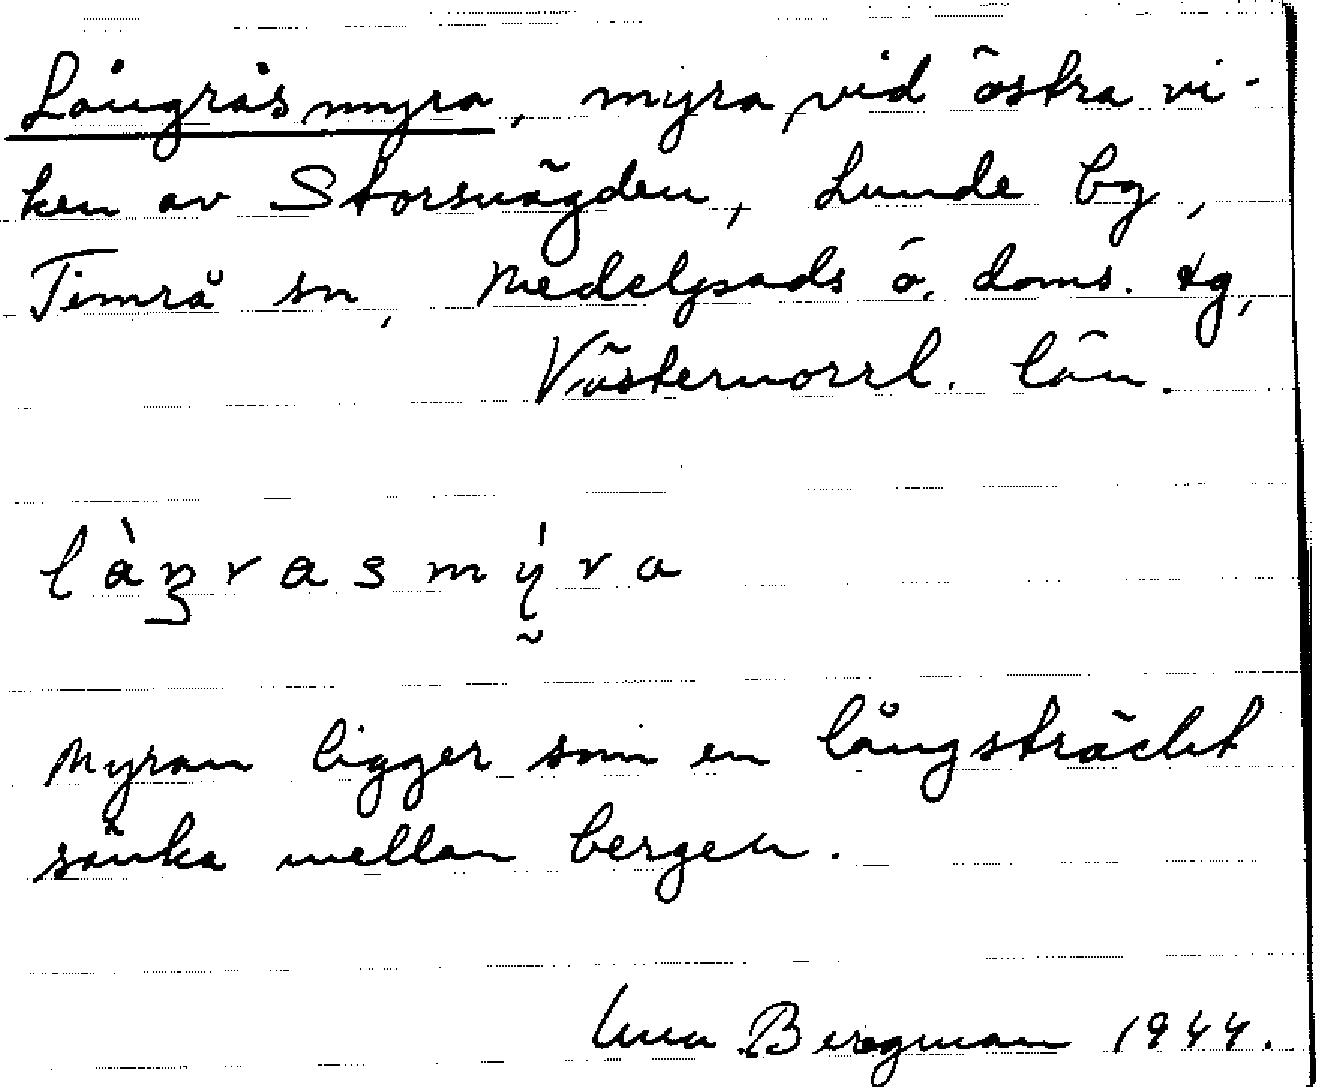 Långråsmyra, myra vid östra vi-
ken av Storsnägden, Lunde bg,
Timrå sn, Medelpads ö. doms. tg,
Västernorrl. län.
làŋrasmýra
Myran ligger som en långsträckt
sänka mellan bergen.
Bergman 1944.